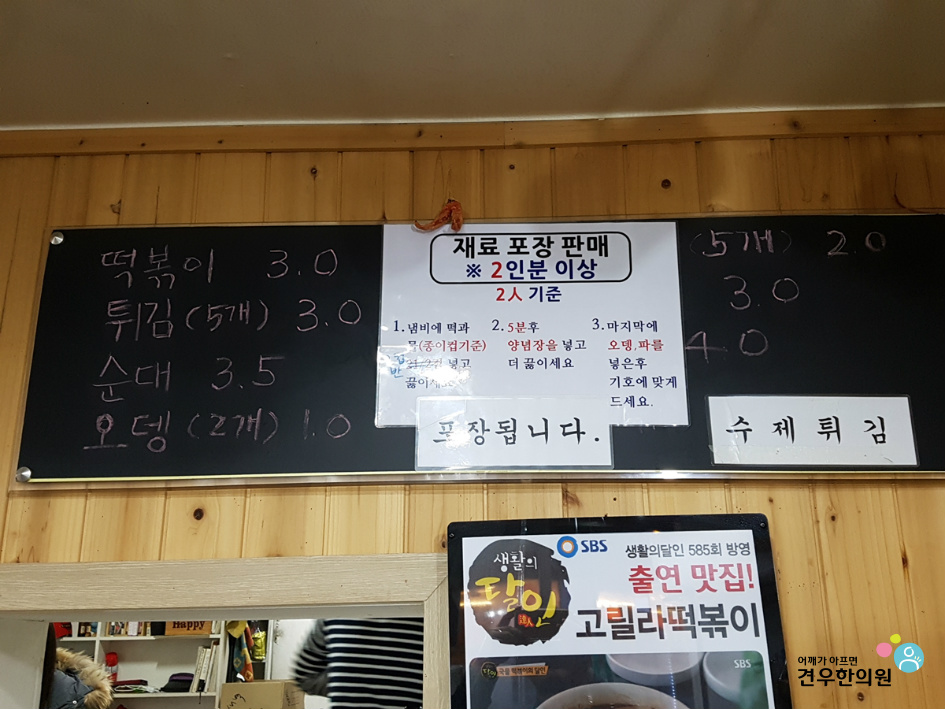 떡볶이 3.0
튀김(5개) 3.0
순대 3.5
오뎅(2개) 1.0
재료 포장 판매
※ 2인분 이상
2人 기준
1. 냄비에 떡과
물(종이컵기준)
2컵 넣고
끓이세요
2. 5분후
양념장을 넣고
더 끓이세요
3. 마지막에
오뎅, 파를
넣은후
기호에 맞게
드세요.
포장됩니다.
(5개) 2.0
3.0
4.0
수제튀김
SBS 생활의달인 585회 방영
출연 맛집!
고릴라떡볶이
생활의
달인
達人
SBS
Happy
어깨가 아프면
견우한의원